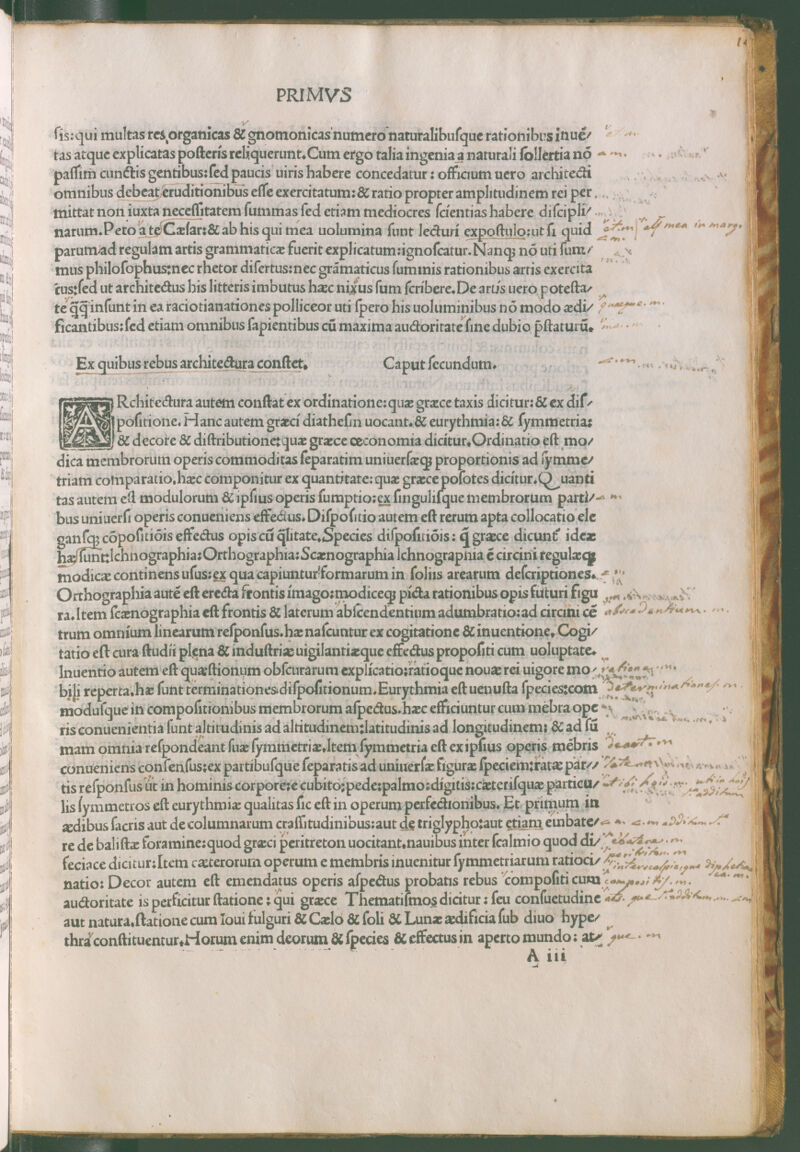 PRIMVS
ſis:qui multas res organicas & gnomonicas numero naturalibuſque rationibus inué/
tas atque explicatas poſteris reliquerunt.Cum ergo talia ingenia a naturali ſollertia nõ
paſſim cunctis gentibus:ſed paucis uiris habere concedatur: officium uero architecti
omnibus debeat eruditionibus eſſe exercitatum:& ratio propter amplitudinem rei per
mittat non iuxta neceſſitatem ſummas ſed etiam mediocres ſcientias habere diſcipli/
narum.Peto a te Cæſar:& ab his qui mea uolumina ſunt lecturi expoſtulo:ut ſi quid
parum ad regulam artis grammaticæ fuerit explicatum:ignoſcatur.Nanq; nõ uti ſum/
mus philoſophus:nec rhetor diſertus:nec grãmaticus ſummis rationibus artis exercita
tus:ſed ut architectus his litteris imbutus hæc nixus ſum ſcribere.De artis uero poteſta/
te q̃q̃ inſunt in ea raciotianationes polliceor uti ſpero his uoluminibus nõ modo ædi/
ficantibus:ſed etiam omnibus ſapientibus cũ maxima auctoritate ſine dubio p̃ſtaturũ.
Ex quibus rebus architectura conſtet. Caput ſecundum.
ARchitectura autem conſtat ex ordinatione:quæ græce taxis dicitur:& ex diſ/
poſitione.Hanc autem græci diatheſin uocant.& eurythmia:& ſymmetria:
& decore & diſtributione:quæ græce œconomia dicitur.Ordinatio eſt mo/
dica membrorum operis commoditas ſeparatim uniuerſæq; proportionis ad ſymme/
triam comparatio.hæc componitur ex quantitate:quæ græce poſotes dicitur.Quanti
tas autem eſt modulorum & ipſius operis ſumptio:ex ſinguliſque membrorum parti/
bus uniuerſi operis conueniens effectus.Diſpoſitio autem eſt rerum apta collocatio ele
ganſq; cõpoſitiõis effectus opis cũ q̃litate.Species diſpoſitiõis: q̃ græce dicunt ideæ
hæ ſunt:Ichnographia:Orthographia:Scænographia Ichnographia é circini regulæq;
modicæ continens uſus:ex qua capiuntur formarum in foliis arearum deſcriptiones.
Orthographia auté eſt erecta frontis imago:modiceq; picta rationibus opis futuri figu
ra.Item ſcænographia eſt frontis & laterum abſcendentium adumbratio:ad circini cé
trum omnium linearum reſponſus.hæ naſcuntur ex cogitatione & inuentione.Cogi/
tatio eſt cura ſtudii plena & induſtriæ uigilantiæque effectus propoſiti cum uoluptate.
Inuentio autem eſt quæſtionum obſcurarum explicatio:ratioque nouæ rei uigore mo/
bili reperta.hæ ſunt terminationes diſpoſitionum.Eurythmia eſt uenuſta ſpecies:com
moduſque in compoſitionibus membrorum aſpectus.hæc efficiuntur cum mébra ope
ris conuenientia ſunt altitudinis ad altitudinem:latitudinis ad longitudinem: & ad ſũ
mam omnia reſpondeant ſuæ ſymmetriæ.Item ſymmetria eſt ex ipſius operis mébris
conueniens conſenſus:ex partibuſque ſeparatis ad uniuerſæ figuræ ſpeciem:ratæ par//
tis reſponſus ut in hominis corpore:e cubito:pede:palmo:digitis:cæteriſquæ particu/
lis ſymmetros eſt eurythmiæ qualitas ſic eſt in operum perfectionibus. Et primum in
ædibus ſacris aut de columnarum craſſitudinibus:aut de triglypho:aut etiam embate/
re de baliſtæ foramine:quod græci peritreton uocitant.nauibus inter ſcalmio quod di/
feciace dicitur:Item cæterorum operum e membris inuenitur ſymmetriarum ratioci/
natio: Decor autem eſt emendatus operis aſpectus probatis rebus compoſiti cum
auctoritate is perficitur ſtatione: qui græce Thematiſmos dicitur: ſeu conſuetudine
aut natura.ſtatione cum Ioui fulguri & Cælo & ſoli & Lunæ ædificia ſub diuo hype/
thra conſtituentur.Horum enim deorum & ſpecies & effectus in aperto mundo: at/
A iii